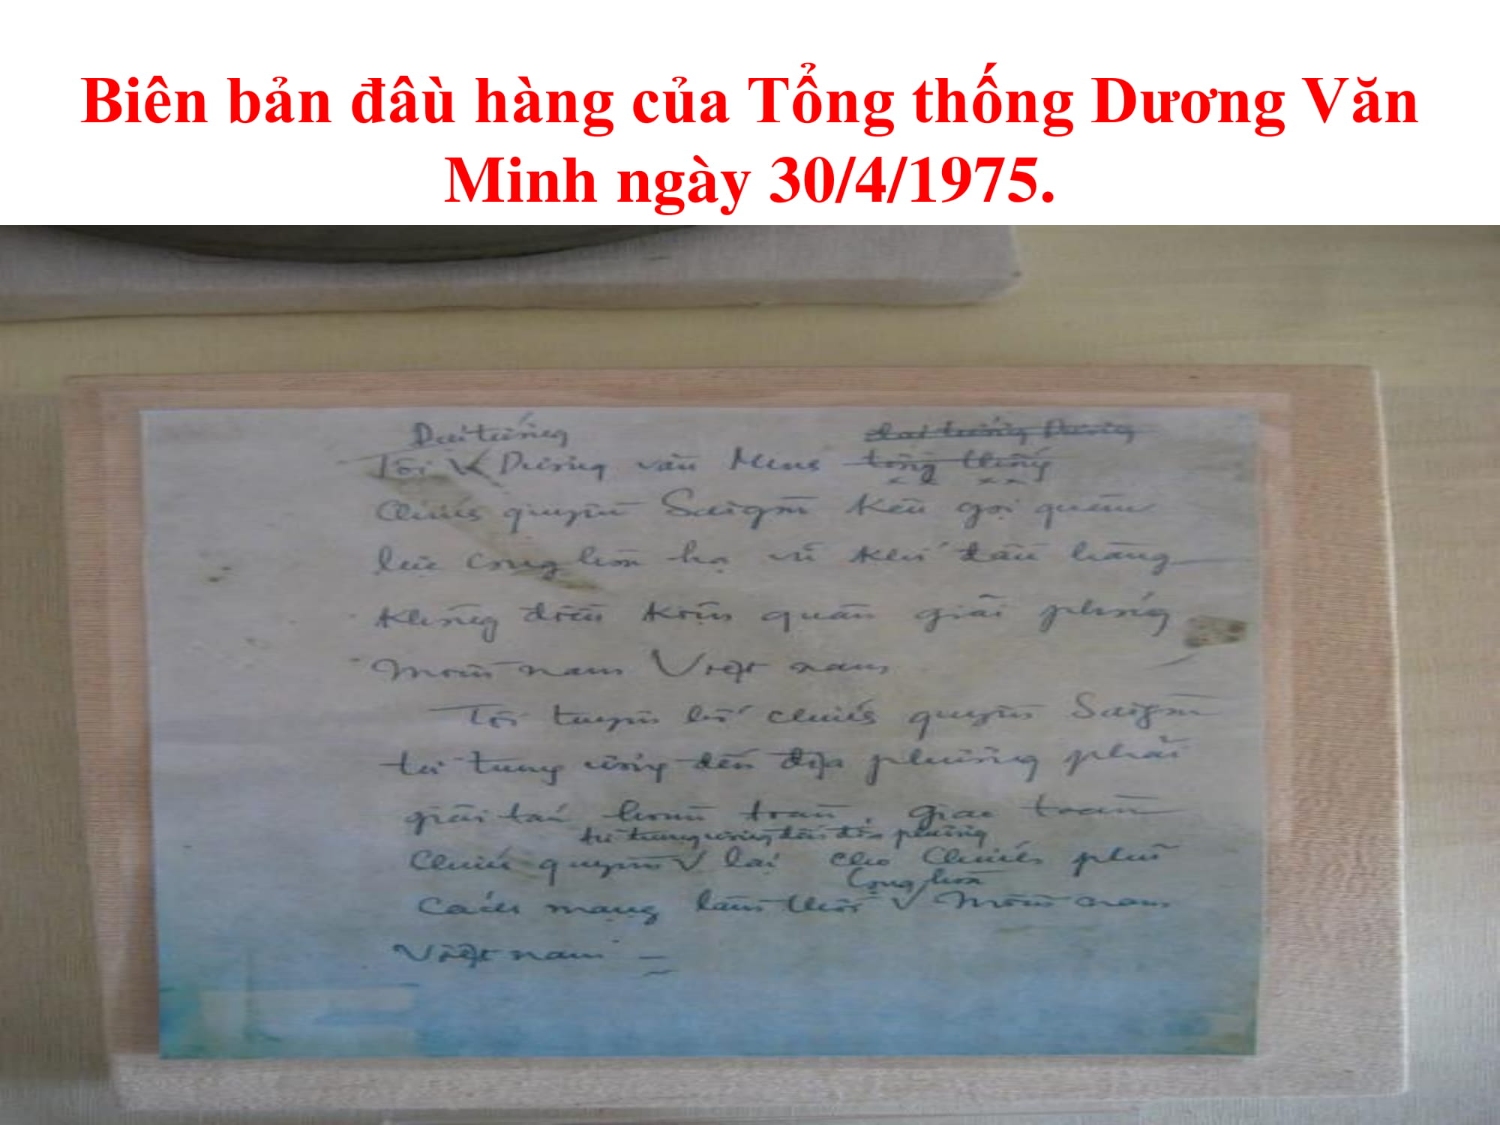 Biên bản đâù hàng của Tổng thống Dương Văn
Minh ngày 30/4/1975.
Đại tướng
đại tướng Dương
Tôi V Dương văn Minh tổng thống
chính quyền Saigòn kêu gọi quân
lực cộng hòa hạ vũ khí đầu hàng
không điều kiện quân giải phóng
miền nam Việt nam
Tôi tuyên bố chính quyền Saigòn
từ trung ương đến địa phương phải
giải tán hoàn toàn, giao toàn
từ trung ương đến địa phương
chính quyền V lại cho chính phủ
cộng hòa
cách mạng lâm thời V miền nam
Việt nam